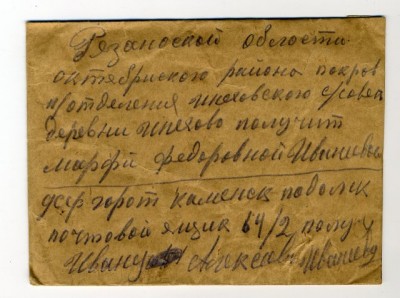 Рязанской области
октябриского района покров
п/отделения инеховского с/совет
деревни инехово получит
марфй федоровной Иванцевой
усср горот каменск подолск
почтовой ящик 64/2 получ
Ивану Алексев Иванцев